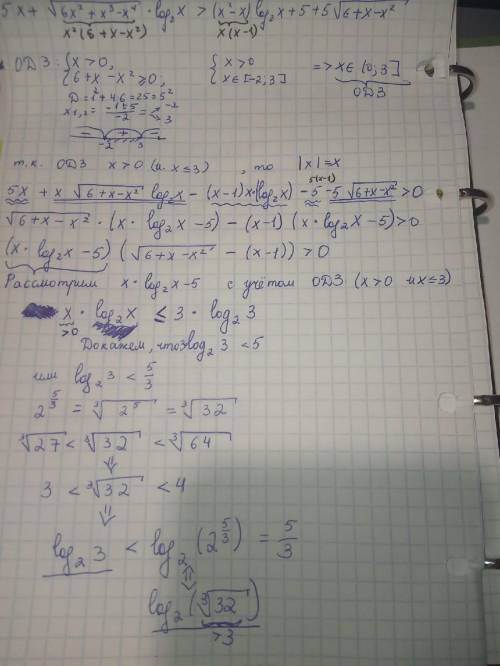 5x + √(6x² + x³ - x⁴) · log₂x > (x² - x) log₂x + 5 + 5√(6 + x - x²)
x²(6 + x - x²) x(x-1)
ОДЗ: { x > 0, { x > 0 => x ∈ (0; 3]
{ 6 + x - x² ≥ 0; { x ∈ [-2; 3] ОДЗ
D = 1² + 4·6 = 25 = 5²
x₁,₂ = (-1 ± 5)/(-2) = -2
3
- + -
-2 3
т.к. ОДЗ x > 0 (и x ≤ 3), то |x| = x
5(x-1)
5x + x √(6 + x - x²) log₂x - (x-1)x·(log₂x) - 5 - 5√(6 + x - x²) > 0
√(6 + x - x²) · (x · log₂x - 5) - (x-1)(x · log₂x - 5) > 0
(x · log₂x - 5)(√(6 + x - x²) - (x-1)) > 0
Рассмотрим x · log₂x - 5 с учётом ОДЗ (x > 0 и x ≤ 3)
x · log₂x ≤ 3 · log₂3
>0
Докажем, что 3log₂3 < 5
или log₂3 < 5/3
2^(5/3) = ∛(2⁵) = ∛32
∛27 < ∛32 < ∛64
⇓
3 < ∛32 < 4
⇓
log₂3 < log₂(2^(5/3)) = 5/3
⇕
log₂(∛32)
>3